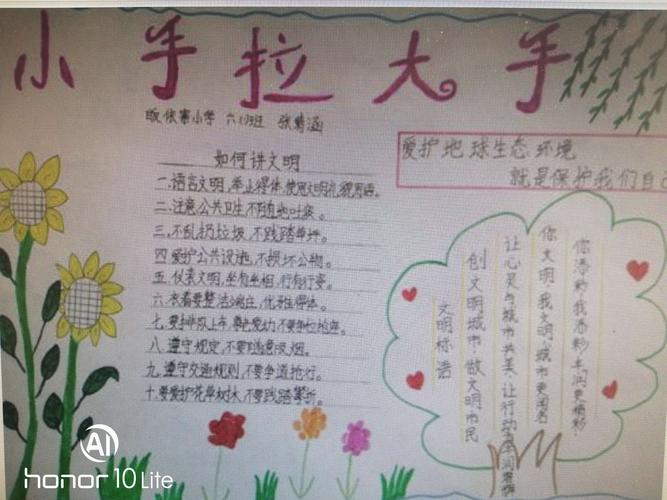 小手拉大手
小学 六 班 张 涵
爱护地球生态环境
就是保护我们自己
如何讲文明
一.语言文明,举止得体,使用文明礼貌用语。
二.注意公共卫生,不随地吐痰。
三,不乱扔垃圾,不践踏草坪。
四 爱护公共设施,不损坏公物。
五,仪表文明,坐有坐相,行有行姿。
六.衣着要整洁端庄,优雅得体。
七,要排队上车,尊老爱幼,不要争抢地座。
八 遵守规定,不要随意吸烟。
九 遵守交通规则,不要争道抢行。
十.要爱护花草树木,不要践踏攀折。
你添彩我添彩 更精彩
你文明我文明,城市更闻名
让心灵与城市共美,让行动
创文明城市 做文明市民
文明标语
AI
honor 10 Lite